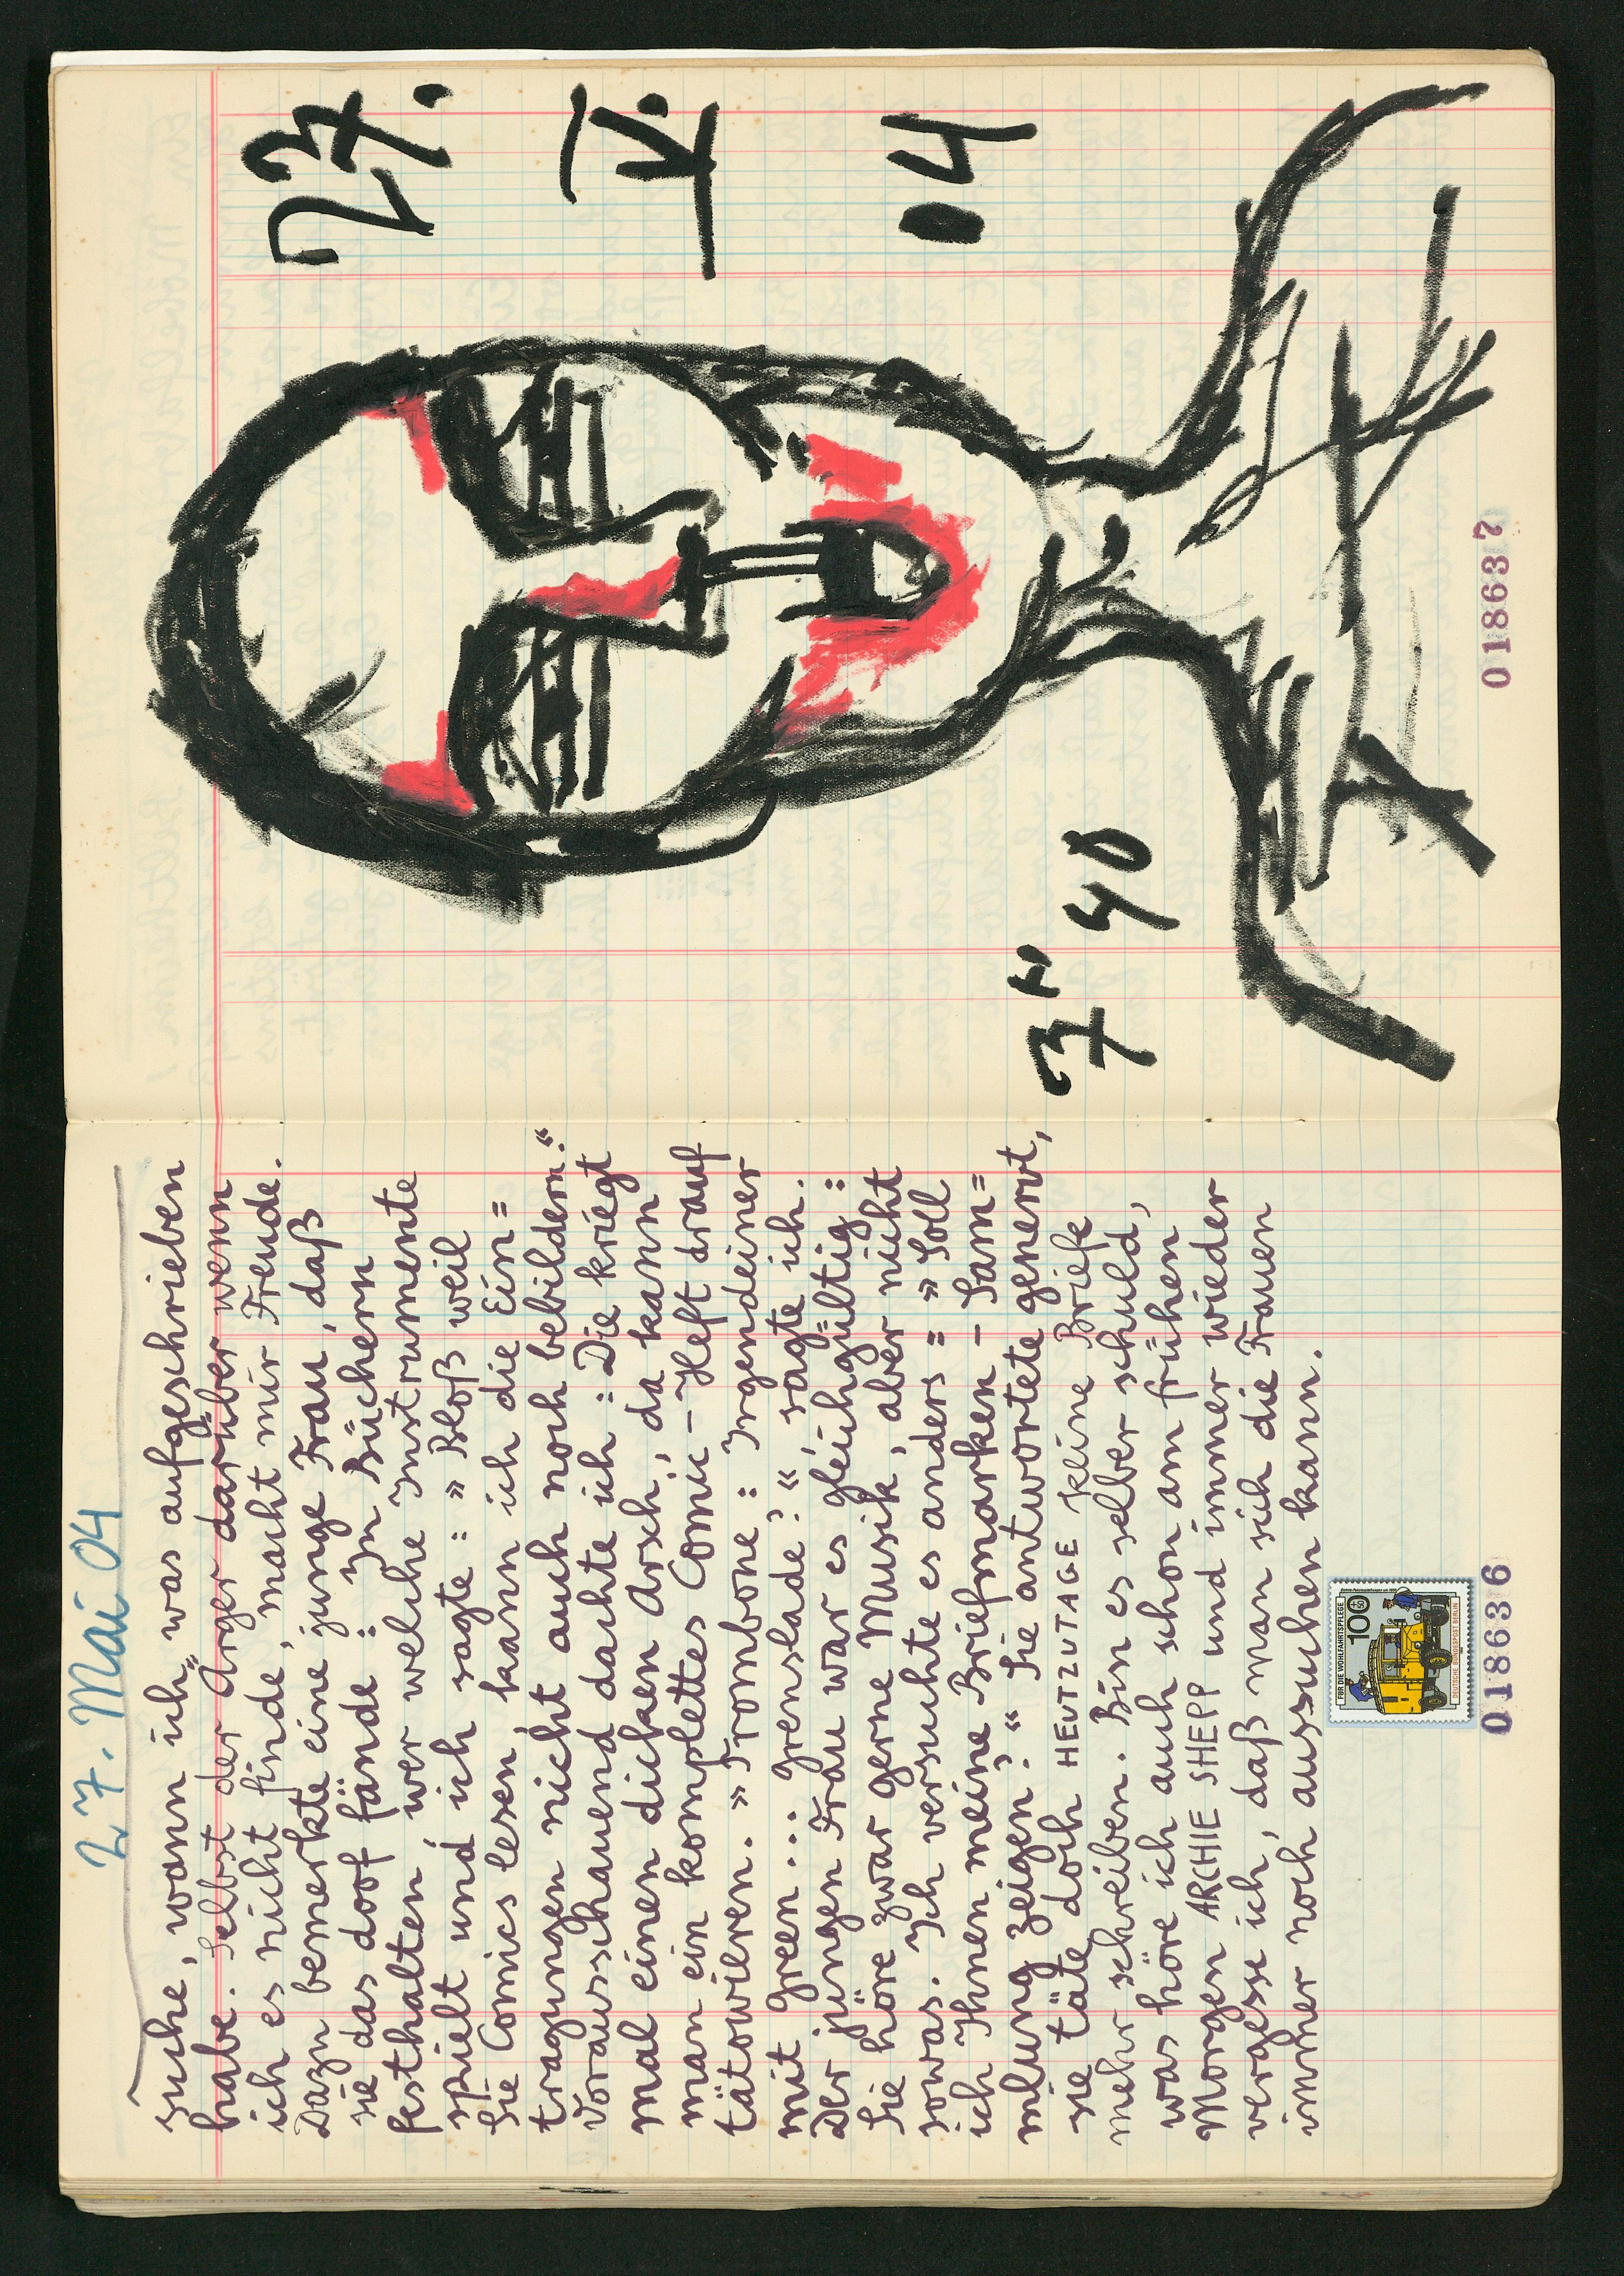 27. Mai 04
suche, wann ich" was aufgeschrieben
habe. Selbst der Ärger darüber wenn
ich es nicht finde, macht mir Freude.
Dazu bemerkte eine junge Frau, daß
sie das doof fände : In Büchern
festhalten, wer welche Instrumente
spielt und ich sagte : » Bloß weil
Sie Comics lesen, kann ich die Ein=
tragungen nicht auch noch bebildern.«
Vorausschauend dachte ich : Die kriegt
mal einen dicken Arsch, da kann
man ein komplettes Comic-Heft drauf
tätowieren. » Trombone : Irgendeiner
mit Green ... Grenslade? «, sagte ich.
Der jungen Frau war es gleichgültig :
Sie höre zwar gerne Musik, aber nicht
sowas. Ich versuchte es anders = » Soll
ich Ihnen meine Briefmarken-Sam=
mlung zeigen? « Sie antwortete genervt,
sie täte doch HEUTZUTAGE keine Briefe
mehr schreiben. Bin es selber schuld,
was höre ich auch schon am frühen
Morgen ARCHIE SHEPP und immer wieder
vergesse ich, daß man sich die Frauen
immer noch aussuchen kann.
FÜR DIE WOHLFAHRTSPFLEGE
100
+50
DEUTSCHE BUNDESPOST BERLIN
018636
27.
V.
04
7 h 40
018637